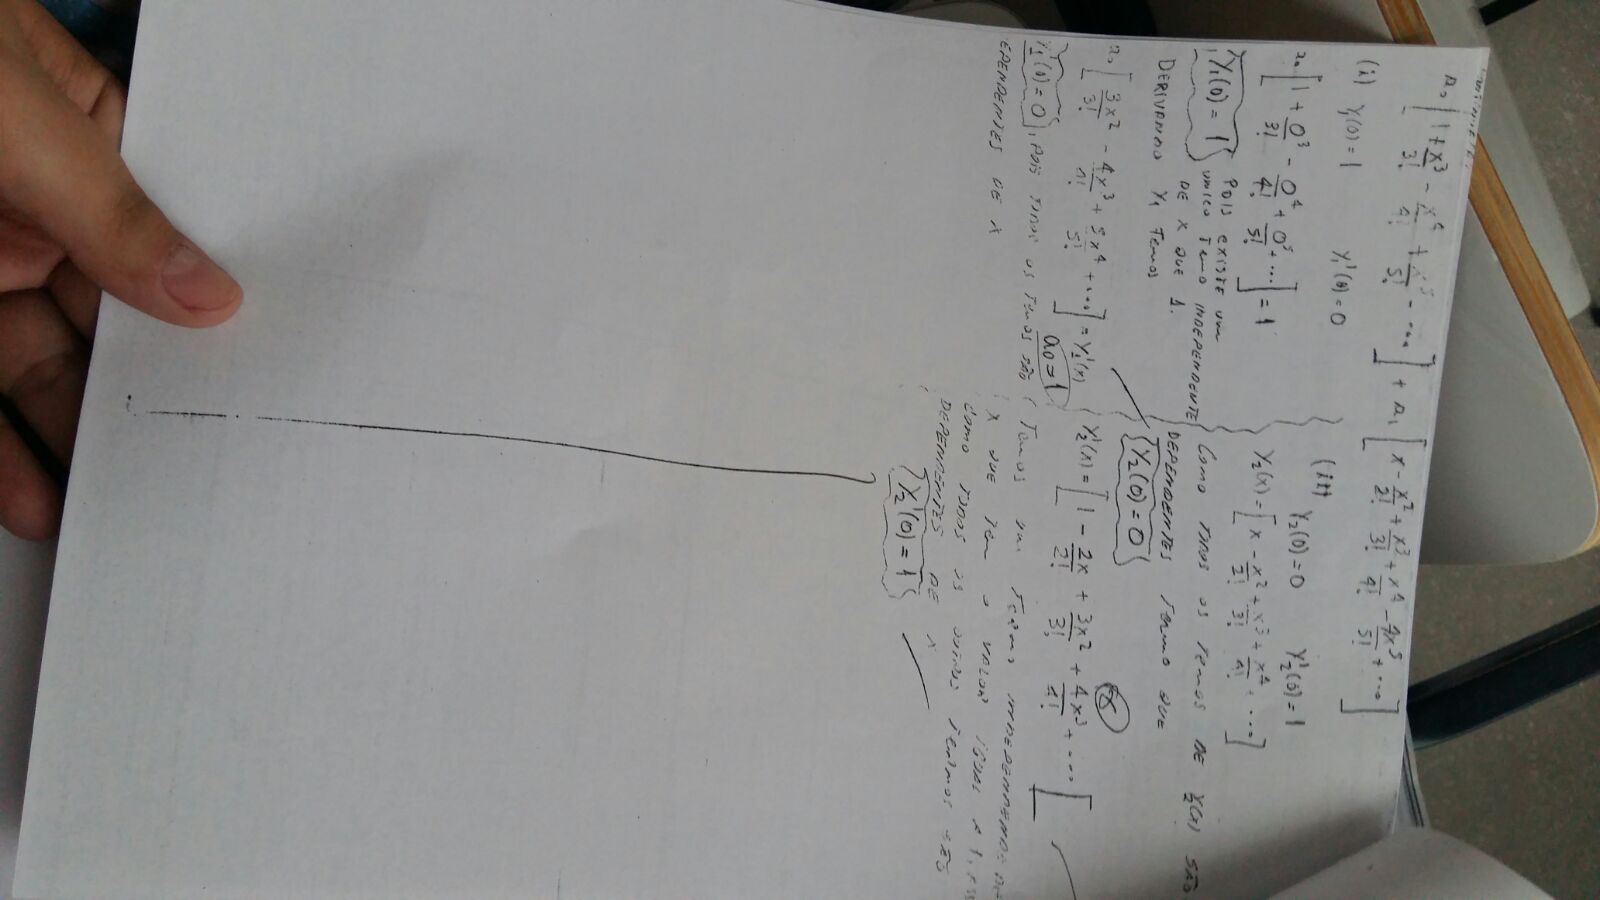 a₀[1 + x³/3! - x⁴/4! + x⁵/5! - ...] + a₁[x - x²/2! + x³/3! + x⁴/4! - 4x⁵/5! + ...]
(i) Y₁(0) = 1 Y₁'(0) = 0
a₀[1 + 0³/3! - 0⁴/4! + 0⁵/5! + ...] = 1
Y₁(0) = 1 POIS EXISTE UM
UNICO TERMO INDEPENDENTE
DE X QUE 1.
DERIVANDO Y₁ TEMOS
a₀[3x²/3! - 4x³/4! + 5x⁴/5! + ...] = Y₁'(x)
a₀ = 1
Y₁'(0) = 0, POIS TODOS OS TEMOS SÃO
EPENDENTES DE X
(ii) Y₂(0) = 0 Y₂'(0) = 1
Y₂(x) = [x - x²/2! + x³/3! + x⁴/4! + ...]
COMO TODOS OS TEMOS DE Y₂(x) SÃO
DEPENDENTES TERMO QUE
Y₂(0) = 0
Y₂'(x) = [1 - 2x/2! + 3x²/3! + 4x³/4! + ...]
TEMOS UM TERMO INDEPENDENTE DE
X QUE TEM O VALOR IGUAL A 1,
COMO TODOS OS TERMOS SÃO
DEPENDENTES DE X
Y₂'(0) = 1